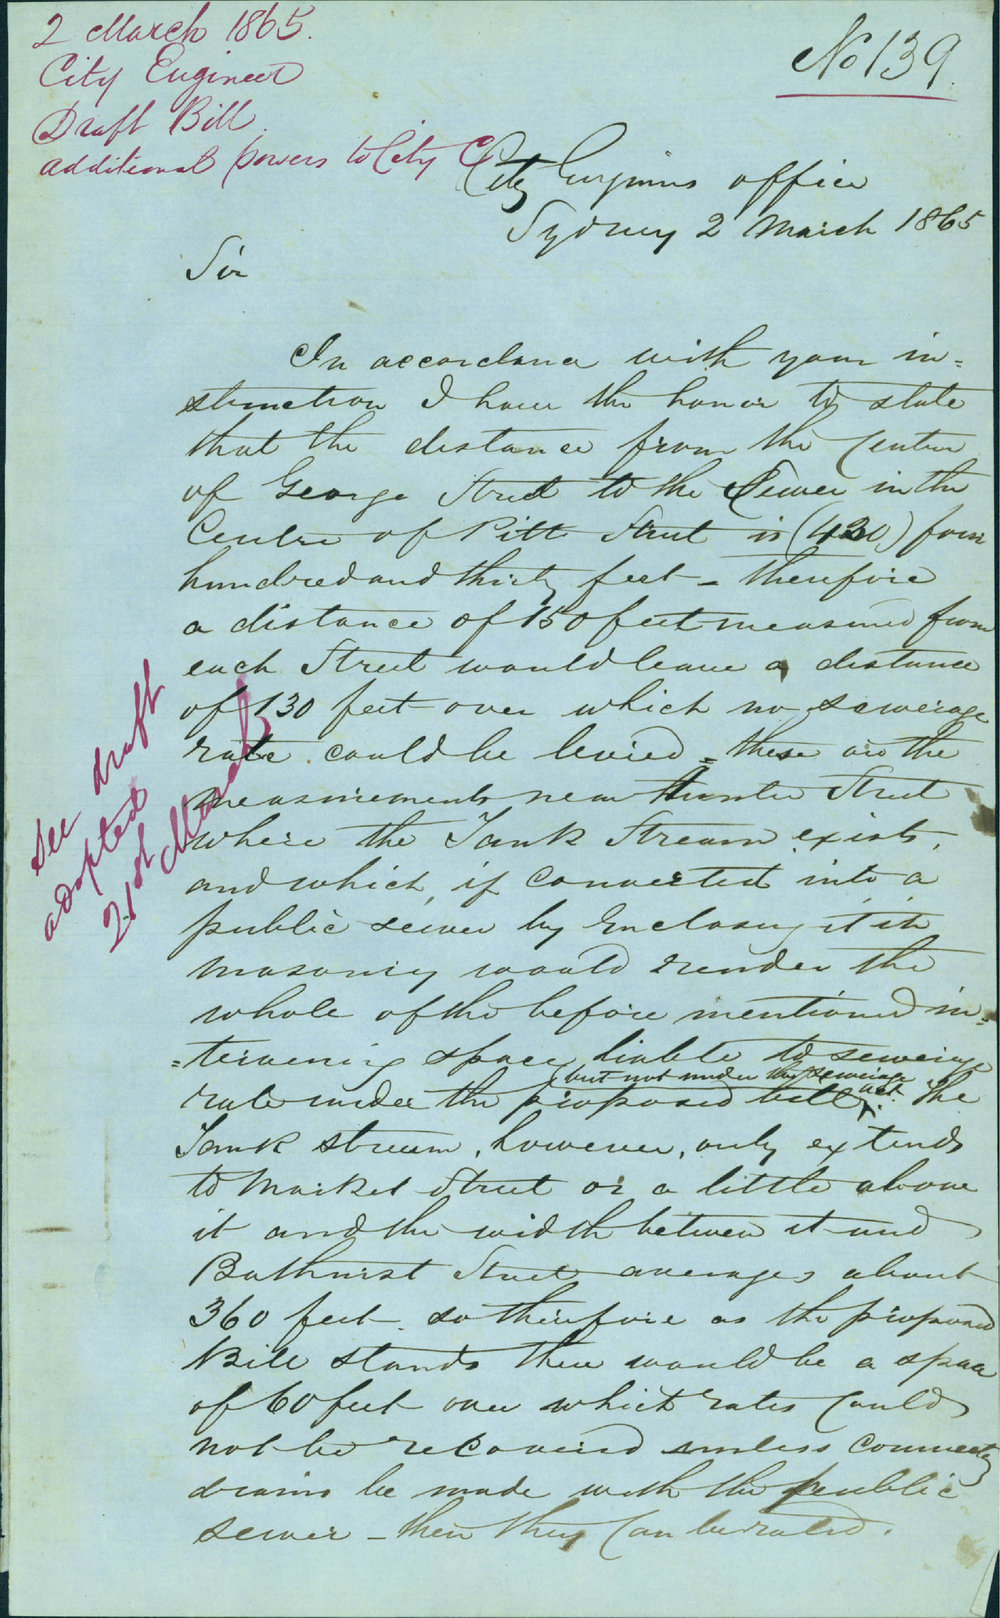 2 March 1865.
City Engineer
Draft Bill
additional powers to City C
No 139.
City Engineers office
Sydney 2 March 1865
Sir
In accordance with your in=
struction I have the honor to state
that the distance from the Centre
of George Street to the Sewer in the
Centre of Pitt Street is (430) four
hundred and thirty feet - therefore
a distance of 150 feet measured from
each Street would leave a distance
of 130 feet over which no sewerage
rate could be levied = these are the
measurements near Hunter Street
where the Tank Stream exists,
and which, if converted into a
public sewer by Enclosing it in
masonry would render the
whole of the before mentioned in=
=tervening space liable to sewerage
rate under the proposed bill. The
but not under the sewerage act
Tank stream, however, only extends
to Market Street or a little above
it and the width between it and
Bathurst Street averages about
360 feet. so therefore as the proposed
Bill stands there would be a space
of 60 feet over which rates could
not be recovered unless connecting
drains be made with the public
sewer - then they can be rated.
See draft
adopted
21st March